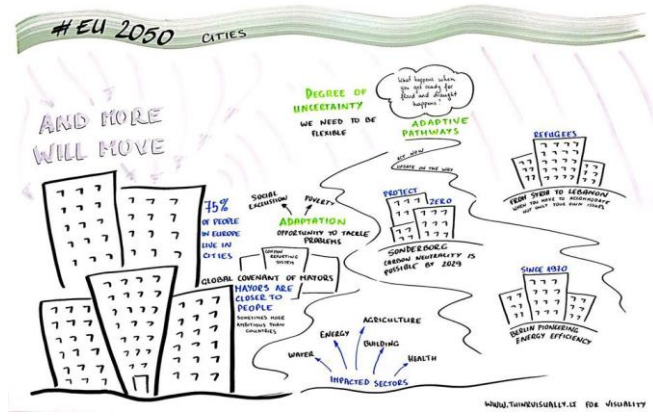 #EU 2050 CITIES
AND MORE
WILL MOVE
75%
OF PEOPLE
IN EUROPE
LIVE IN
CITIES
DEGREE OF
UNCERTAINTY
WE NEED TO BE
FLEXIBLE
"What happens when
you get ready for
flood and drought
happens"
ADAPTIVE
PATHWAYS
ACT NOW
UPDATE ON THE WAY
SOCIAL
EXCLUSION
POVERTY
ADAPTATION
OPPORTUNITY TO TACKLE
PROBLEMS
CARBON
REPORTING
SYSTEM
GLOBAL COVENANT OF MAYORS
MAYORS ARE
CLOSER TO
PEOPLE
SOMETIMES MORE
AMBITIOUS THAN
COUNTRIES
PROJECT
ZERO
SONDERBORG
CARBON NEUTRALITY IS
POSSIBLE BY 2029
REFUGEES
FROM SYRIA TO LEBANON
WHEN YOU HAVE TO ACCOMMODATE
NOT ONLY YOUR OWN ISSUES
SINCE 1970
BERLIN PIONEERING
ENERGY EFFICIENCY
WATER
ENERGY
AGRICULTURE
BUILDING
HEALTH
IMPACTED SECTORS
WWW.THINKVISUALLY.LT FOR VISUALITY